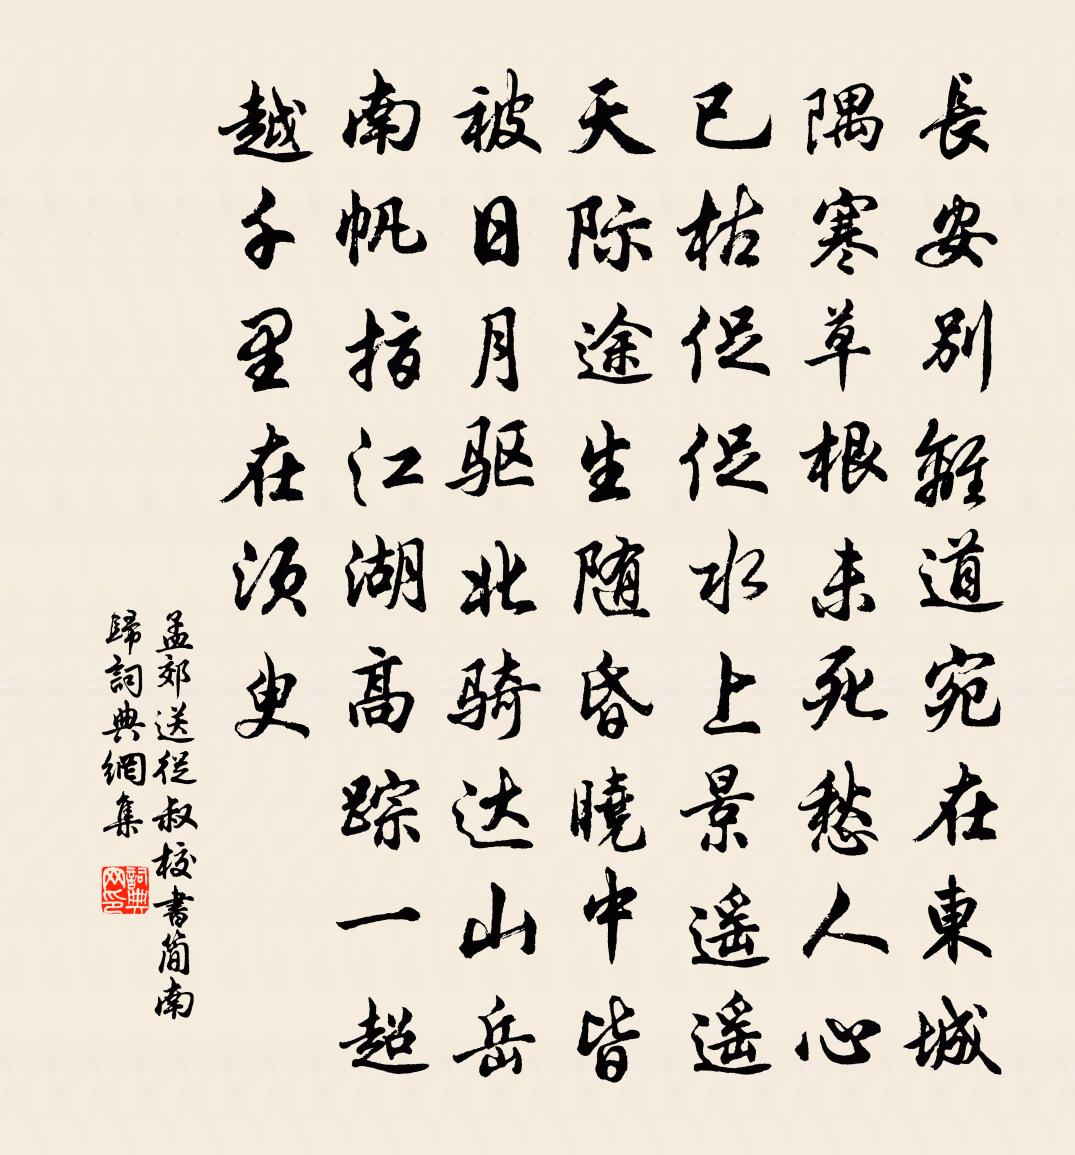 長安别離道宛在東城
隅寒草根未死愁人心
已枯促促水上景遥遥
天际途生随昏曉中皆
被日月驱北骑达山岳
南帆指江湖高踪一超
越千里在须臾
孟郊送從叔校書簡南
歸詞典網集
詞典网印